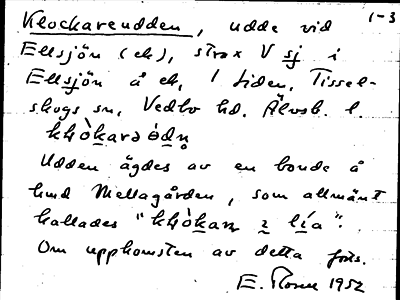 Klockareudden, udde vid 1-3
Ellsjön (ek), strax V sj i
Ellsjön å ek, 1 Liden, Tissel-
skogs sn, Vedbo hd. Älvsb. l.
khòkarə òdn̥
Udden ägdes av en bonde å
hmd Mellagården, som allmänt
kallades "khòkan i lia".
Om uppkomsten av detta forts.
E. 1952